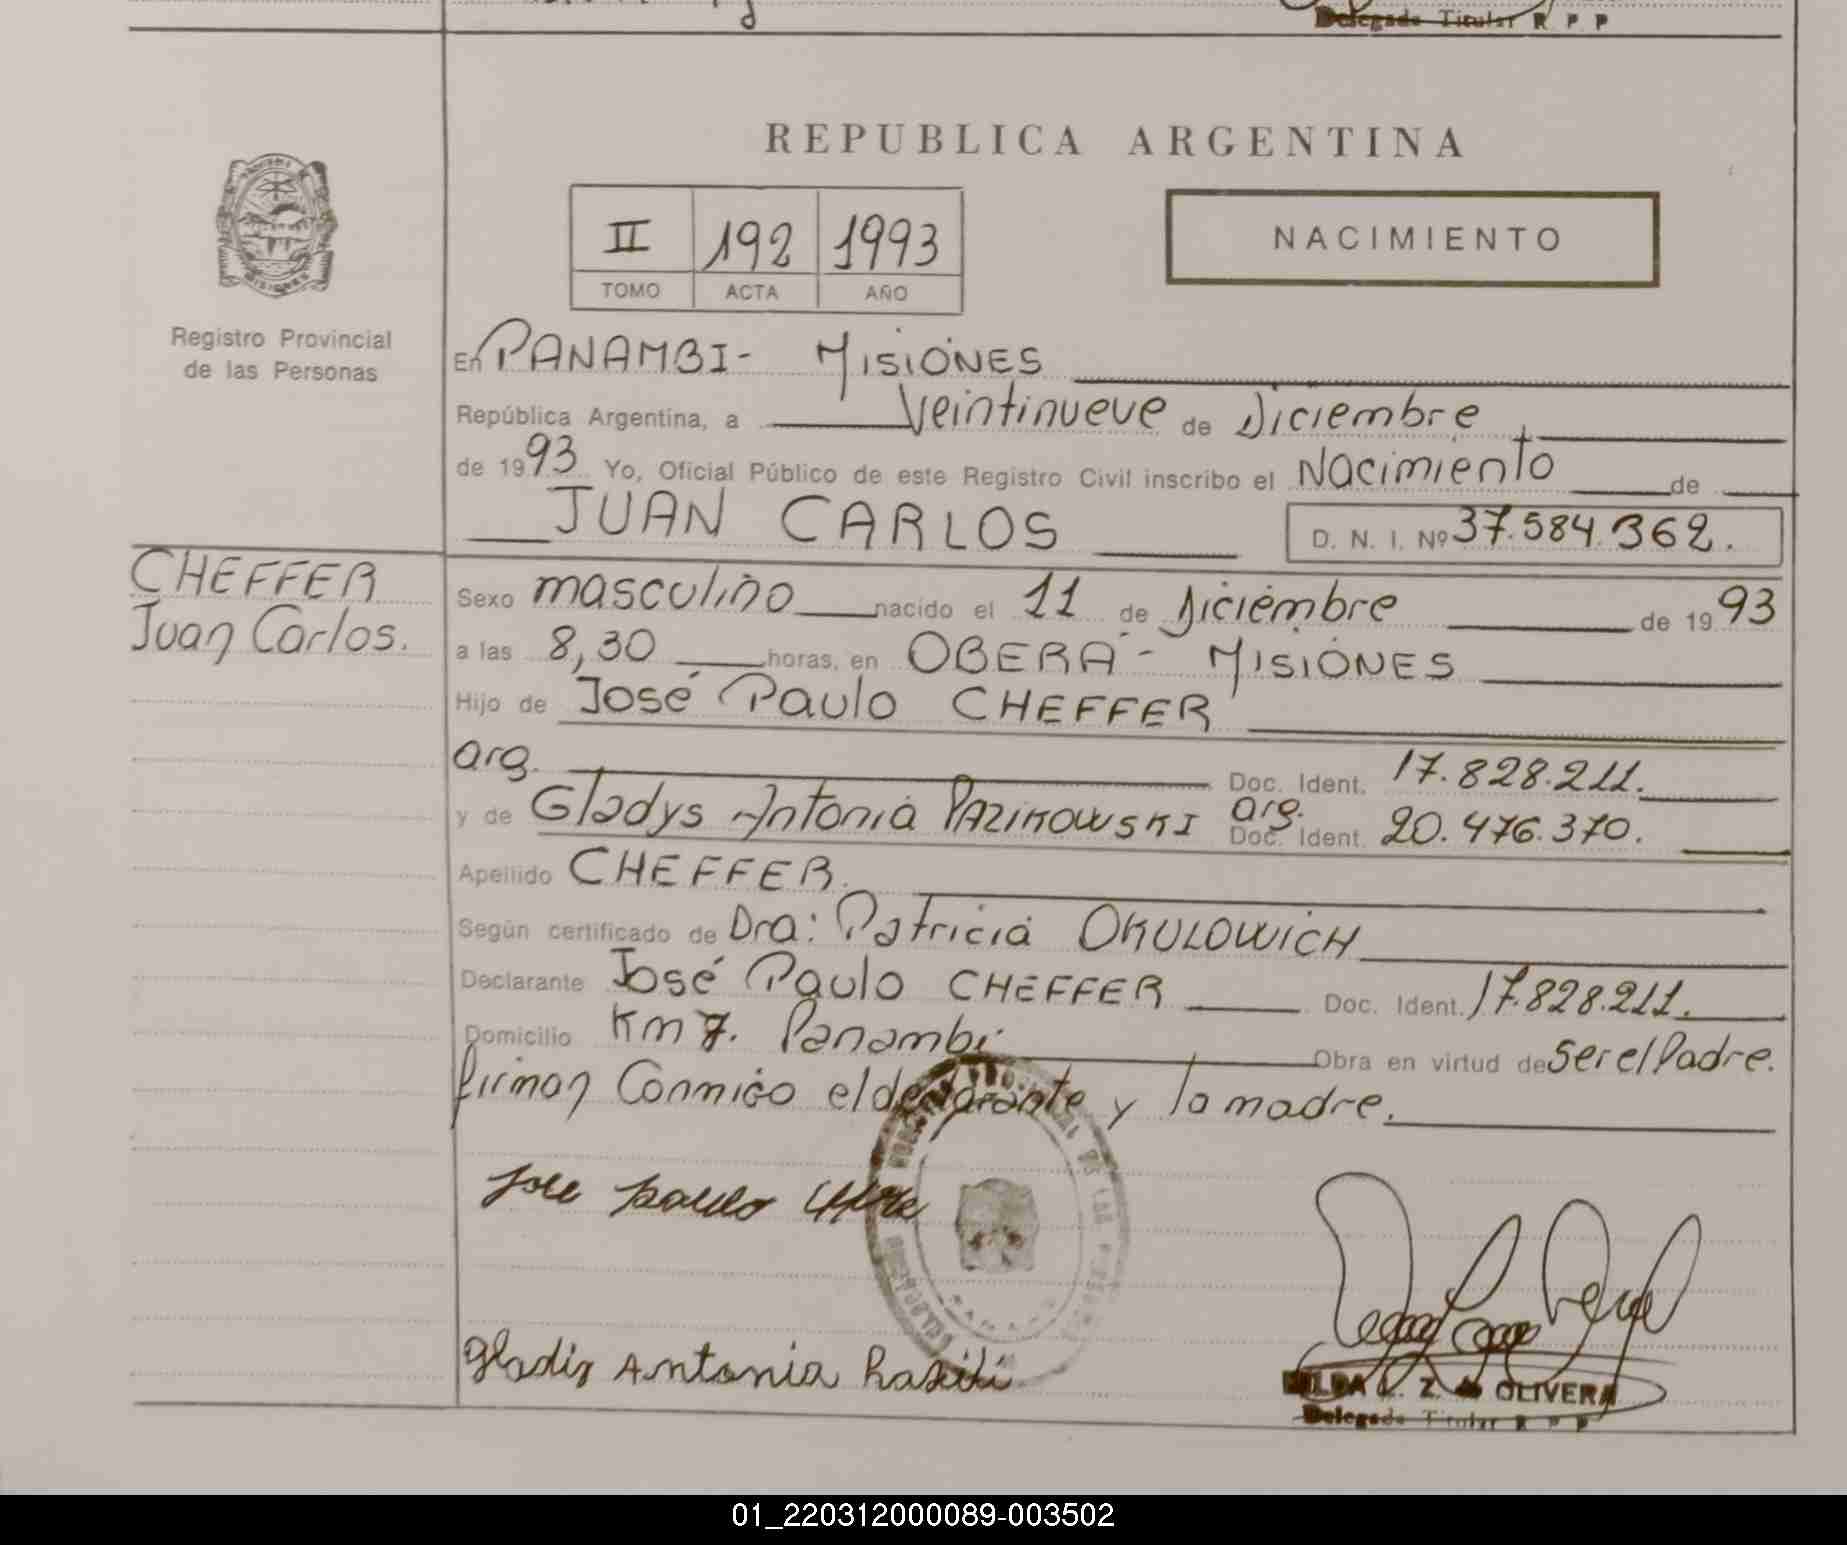 Delegado Titular R P P
REPUBLICA ARGENTINA
II 192 1993
TOMO ACTA AÑO
NACIMIENTO
MISIONES
Registro Provincial
de las Personas
En PANAMBI - MISIONES
República Argentina, a Veintinueve de Diciembre
de 1993 Yo, Oficial Público de este Registro Civil inscribo el Nacimiento de
JUAN CARLOS D. N. I. Nº 37.584.362.
CHEFFER
Juan Carlos.
Sexo masculino nacido el 11 de Diciembre de 1993
a las 8,30 horas, en OBERÁ - MISIONES
Hijo de José Paulo CHEFFER
arg. Doc. Ident. 17.828.211.
y de Gladys Antonia PAZIKOWSKI arg. Doc. Ident. 20.476.370.
Apellido CHEFFER.
Según certificado de Dra: Patricia OKULOWICH
Declarante José Paulo CHEFFER Doc. Ident. 17.828.211.
Domicilio Km 7. Panambi Obra en virtud de Ser el Padre.
firman Conmigo el declarante y la madre.
Jose paulo
Gladis Antonia
Z. de OLIVERA
Delegado Titular R P P
01_220312000089-003502